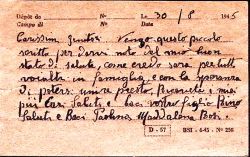 Dépôt de N° Le 30/8 1945
Campo di N°
Carissimi Genitori. Vengo questo piccolo
scritto per darvi noto del mio buon
stato di salute, come credo sarà per tutti
voialtri in famiglia, e con la speranza
di potersi unire presto. Ricevete i miei
più cari saluti e baci vostro figlio Primo
Saluti e Baci Paolino, Maddalena Bosi.
D - 57 BSI - 6-45 - N° 256